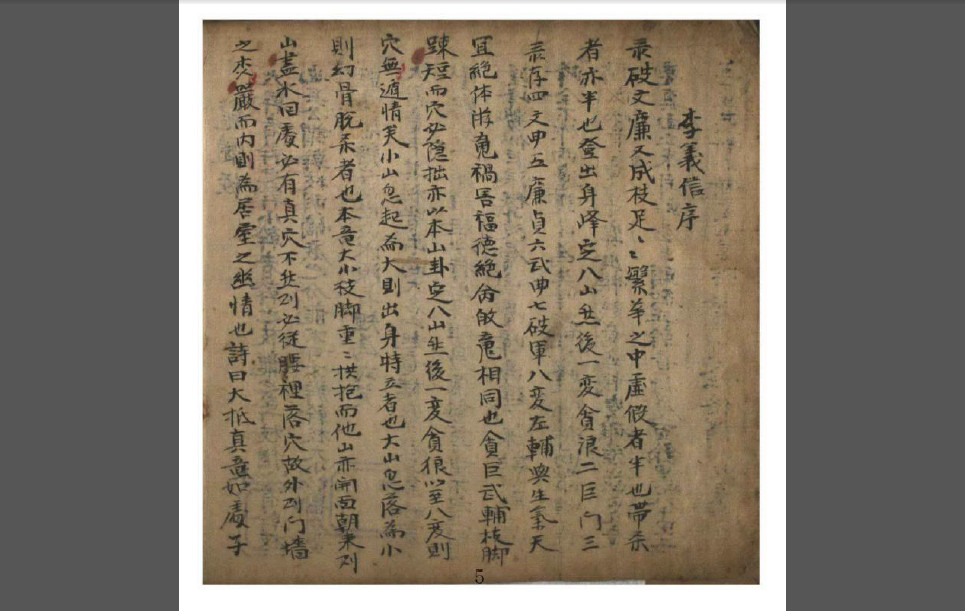 李義信序
彔破文廉又成枝足、〻繁華之中虛假者半也帶彔
者亦半也登出身峰定八山然後一変貪浪二巨门三
彔存四文曲五廉貞六武曲七破軍八変左輔與生氣天
宜絶体游䰟禍害福德絶命皈䰟相同也貪巨武輔枝脚
踈短而穴必隐拙亦以本山卦定八山然後一変貪狼以至八变則
穴無遁情矣小山忽起爲大則出身特立者也大山忽落爲小
則幻骨脫柔者也本竜大小枝脚重〻拱抱而他山亦開面朝来則
山盡水回處必有真穴不然則必従腰裡落穴故外則门墙
之森嚴而内則為居室之幽情也詩曰大抵真竜如處子
5